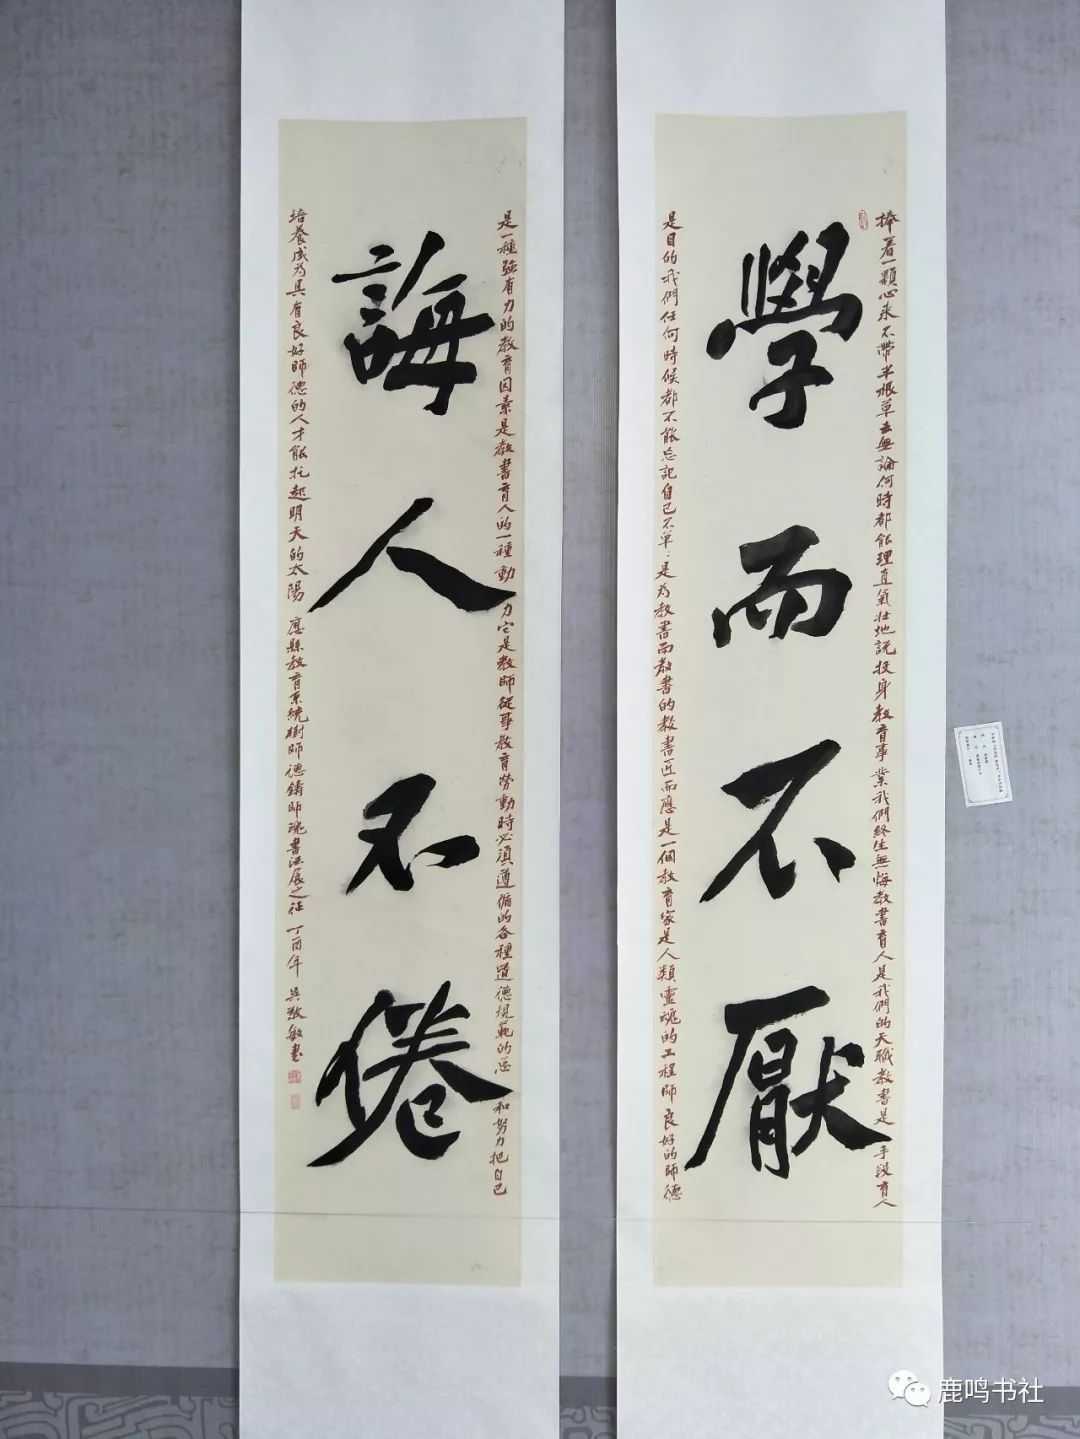 學而不厭
捧着一顆心来不帶半根草去無論何時都能理直氣壮地説投身教育事業我們終生無悔教書育人是我們的天職教書是手段育人
是目的我們任何時候都不能忘記自己不单：是为教書而教書的教書匠而應是一個教育家是人類靈魂的工程師良好的師德
誨人不倦
是一種強有力的教育因素是教書育人的一種動力它是教師從事教育勞動時必須遵循的各種道德規範的总和努力把自己
培養成为具有良好師德的人才能托起明天的太陽 應縣教育系統樹師德鑄師魂書法展之征 丁酉年 吴敬敏書
鹿鸣书社